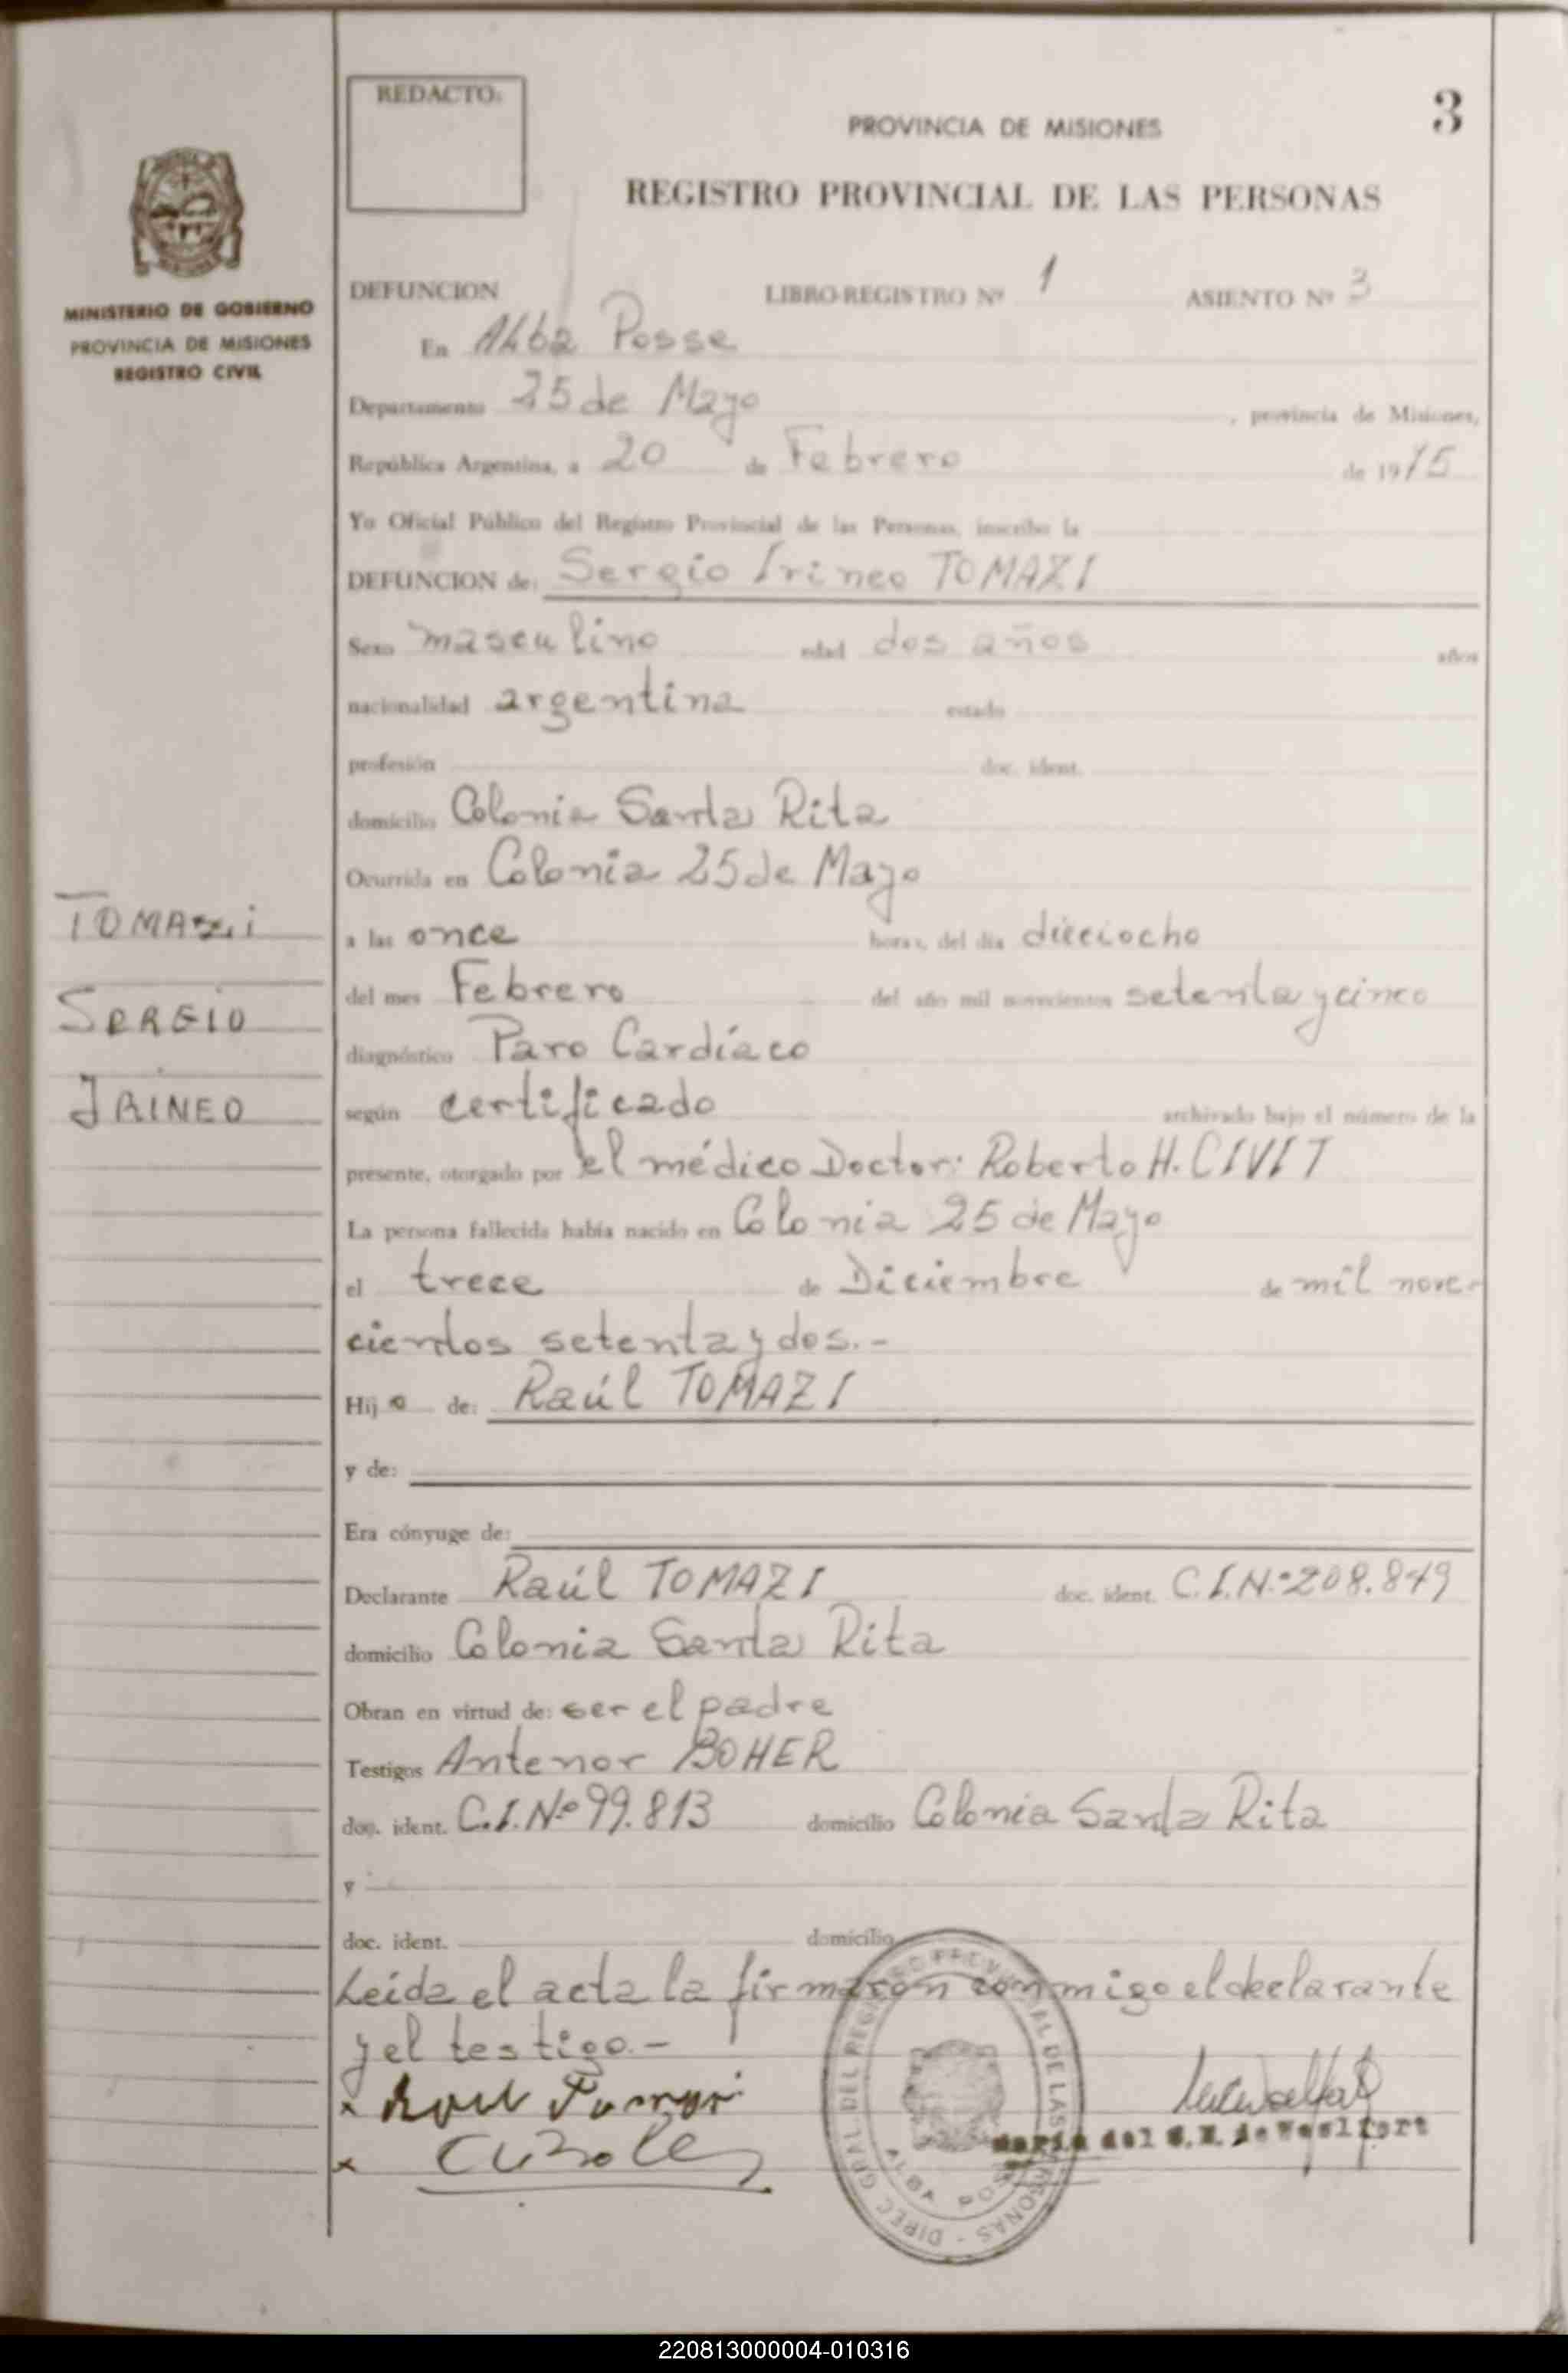 REDACTO:
3
PROVINCIA DE MISIONES
REGISTRO PROVINCIAL DE LAS PERSONAS
MINISTERIO DE GOBIERNO
PROVINCIA DE MISIONES
REGISTRO CIVIL
DEFUNCION LIBRO-REGISTRO Nº 1 ASIENTO Nº 3
En Alba Posse
Departamento 25 de Mayo, provincia de Misiones,
República Argentina, a 20 de Febrero de 1975
Yo Oficial Público del Registro Provincial de las Personas, inscribo la
DEFUNCION de: Sergio Irineo TOMAZI
Sexo masculino edad dos años años
nacionalidad argentina estado
profesión doc. ident.
domicilio Colonia Santa Rita
Ocurrida en Colonia 25 de Mayo
TOMAZZi
a las once horas, del día dieciocho
del mes Febrero del año mil novecientos setenta y cinco
SERGIO
diagnóstico Paro Cardíaco
IRINEO
según certificado archivado bajo el número de la
presente, otorgado por el médico Doctor: Roberto H. CIVIT
La persona fallecida había nacido en Colonia 25 de Mayo
el trece de Diciembre de mil nove-
cientos setenta y dos.-
Hijo de: Raúl TOMAZI
y de:
Era cónyuge de:
Declarante Raúl TOMAZI doc. ident. C.I.Nº 208.849
domicilio Colonia Santa Rita
Obran en virtud de: ser el padre
Testigos Antenor BOHER
doc. ident. C.I.Nº 99.813 domicilio Colonia Santa Rita
y
doc. ident. domicilio
Leída el acta la firmaron conmigo el declarante
y el testigo.-
DIREC. GRAL. DEL REGISTRO PROVINCIAL DE LAS PERSONAS
ALBA POSSE
220813000004-010316